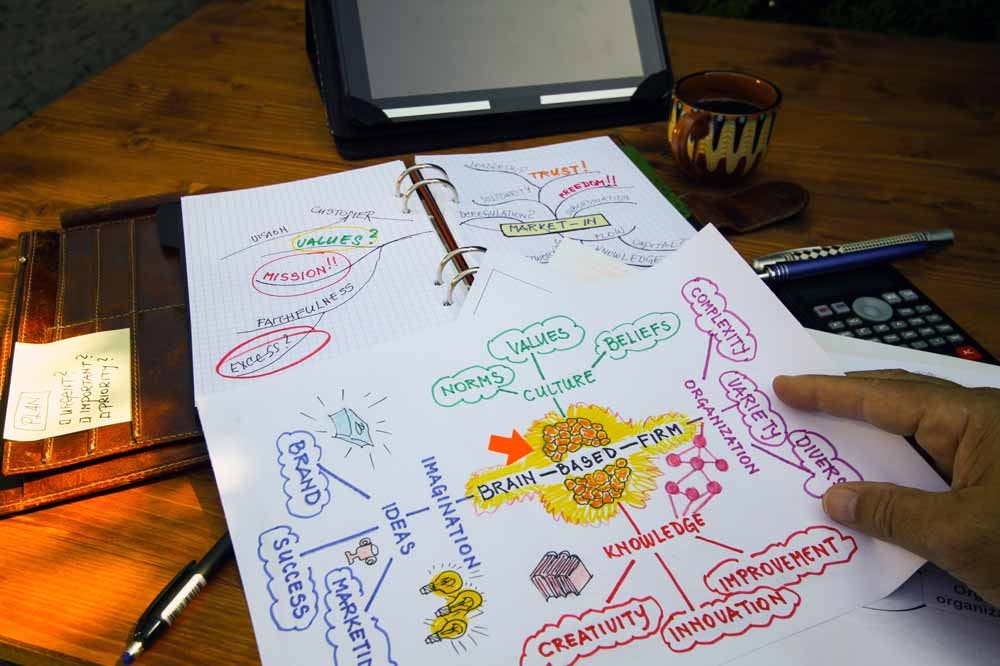 CUSTOMER
VISION
VALUES?
MISSION!!
FAITHFULNESS
EXCESS?
TRUST!
FREEDOM!!
SOLIDARITY
DEREGULATION?
MARKET-IN
FLOW
CAPITAL?
KNOWLEDGE
PLAN
URGENT?
IMPORTANT?
PRIORITY?
VALUES
BELIEFS
NORMS
CULTURE
COMPLEXITY
ORGANIZATION
VARIETY
DIVERS
BRAIN-BASED-FIRM
IMAGINATION
IDEAS
BRAND
SUCCESS
MARKETIN
KNOWLEDGE
CREATIVITY
INNOVATION
IMPROVEMENT
organiz